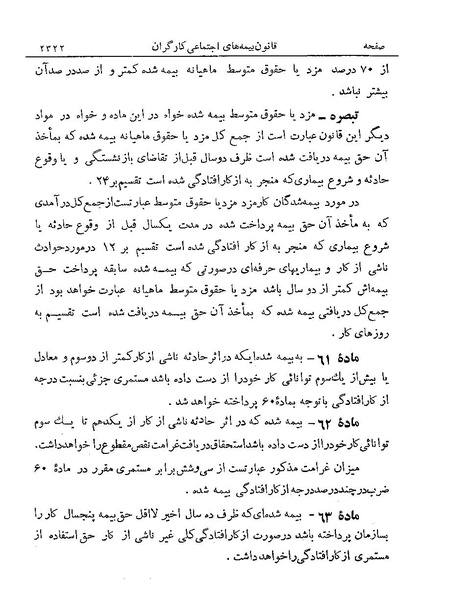 صفحه قانون بیمه‌های اجتماعی کارگران ۲۳۲۲
از ۷۰ درصد مزد یا حقوق متوسط ماهیانه بیمه شده کمتر و از صددرصد آن
بیشتر نباشد .
تبصره ـ مزد یا حقوق متوسط بیمه شده خواه در این ماده و خواه در مواد
دیگر این قانون عبارت است از جمع کل مزد یا حقوق ماهیانه بیمه شده که بمأخذ
آن حق بیمه دریافت شده است ظرف دو سال قبل از تقاضای بازنشستگی و یا وقوع
حادثه و شروع بیماری که منجر به از کار افتادگی شده است تقسیم بر ۲۴ .
در مورد بیمه شدگان کارمزد مزد یا حقوق متوسط عبارتست از جمع کل درآمدی
که به مأخذ آن حق بیمه پرداخت شده در مدت یکسال قبل از وقوع حادثه یا
شروع بیماری که منجر به از کار افتادگی شده است تقسیم بر ۱۲ در مورد حوادث
ناشی از کار و بیماریهای حرفه‌ای در صورتی که بیمه شده سابقه پرداخت حق
بیمه‌اش کمتر از دو سال باشد مزد یا حقوق متوسط ماهیانه عبارت خواهد بود از
جمع کل دریافتی بیمه شده که بمأخذ آن حق بیمه دریافت شده است تقسیم به
روزهای کار .
مادهٔ ۶۱ – به بیمه شده ایکه در اثر حادثه ناشی از کار کمتر از دو سوم و معادل
یا بیش از یک سوم توانائی کار خود را از دست داده باشد مستمری جزئی بنسبت درجه
از کار افتادگی با توجه بمادهٔ ۶۰ پرداخته خواهد شد .
مادهٔ ۶۲ – بیمه شده که در اثر حادثه ناشی از کار از یکدهم تا یک سوم
توانائی کار خود را از دست داده باشد استحقاق دریافت غرامت نقص مقطوع را خواهد داشت.
میزان غرامت مذکور عبارتست از سی و شش برابر مستمری مقرر در مادهٔ ۶۰
ضرب در چند درصد درجه از کار افتادگی بیمه شده .
مادهٔ ۶۳ – بیمه شده‌ای که ظرف ده سال اخیر لااقل حق بیمه پنجسال کار را
بسازمان پرداخته باشد در صورت از کار افتادگی کلی غیر ناشی از کار حق استفاده از
مستمری از کار افتادگی را خواهد داشت .